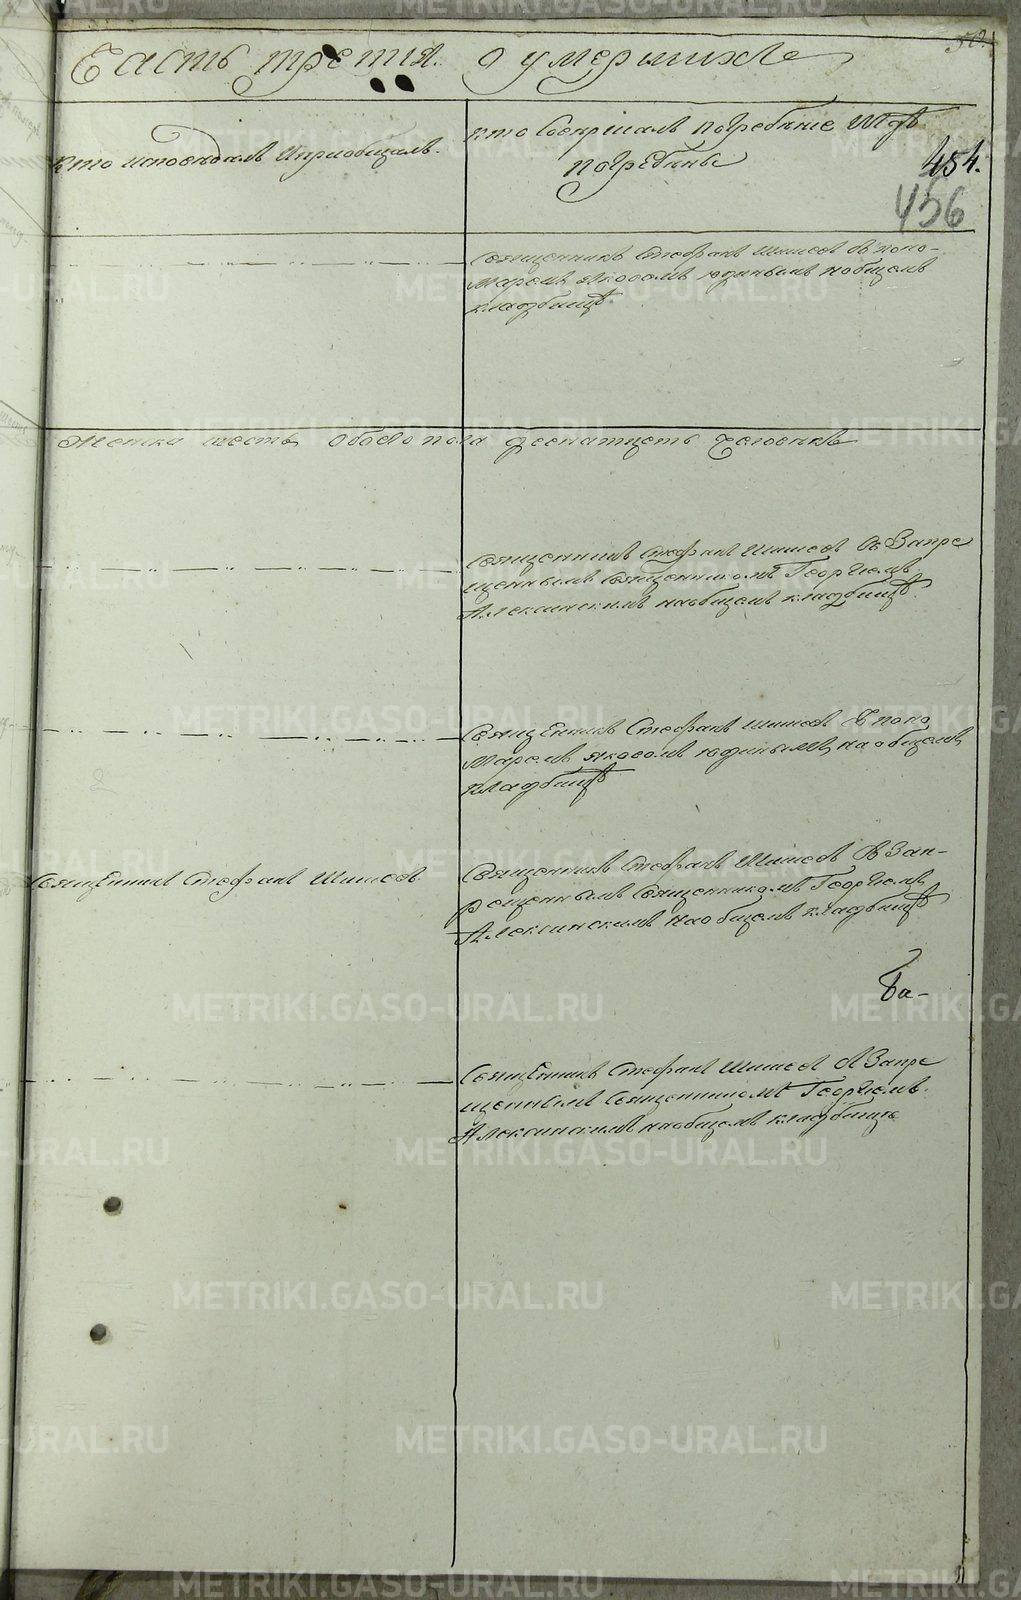 50.
Часть третія. о умершихъ
кто исповѣдалъ и приобщалъ.
кто совершалъ погребение и гдѣ
погребены
454.
456
Священникъ Стефанъ Шишевъ съ поно-
маремъ Яковомъ Юдинымъ на общемъ
кладбищѣ.
Женска шесть обоего пола десять человекъ
Священникъ Стефанъ Шишевъ съ запре
щеннымъ священникомъ Георгиемъ
Алексинскимъ на общемъ кладбищѣ.
Священникъ Стефанъ Шишевъ съ поно
маремъ Яковомъ Юдинымъ, на общемъ
кладбищѣ
Священникъ Стефанъ Шишевъ
Священникъ Стефанъ Шишевъ съ зап-
рещеннымъ священникомъ Георгиемъ
Алексинскимъ на общемъ кладбищѣ
Священникъ Стефанъ Шишевъ съ запре
щеннымъ священникомъ Георгиемъ
Алексинскимъ на общемъ кладбище
METRIKI.GASO-URAL.RU